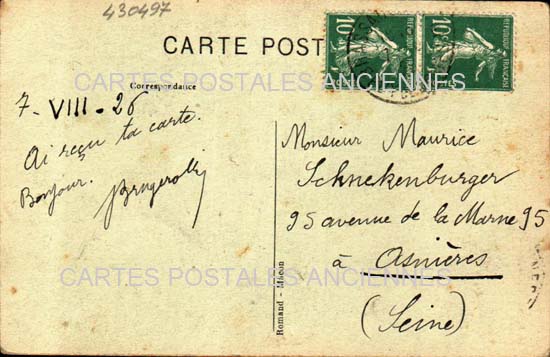 430497
CARTE POST
10
REPUBLIQUE FRANÇAISE
10
REPUBLIQUE FRANÇAISE
CARTES POSTALES ANCIENNES
Correspondance
7 - VIII - 26
Ai reçu ta carte.
Bonjour.
Monsieur Maurice
Schnekenburger
95 avenue de la Marne 95
à Asnières
(Seine)
CARTES POSTALES ANCIENNES
Romand - Mâcon